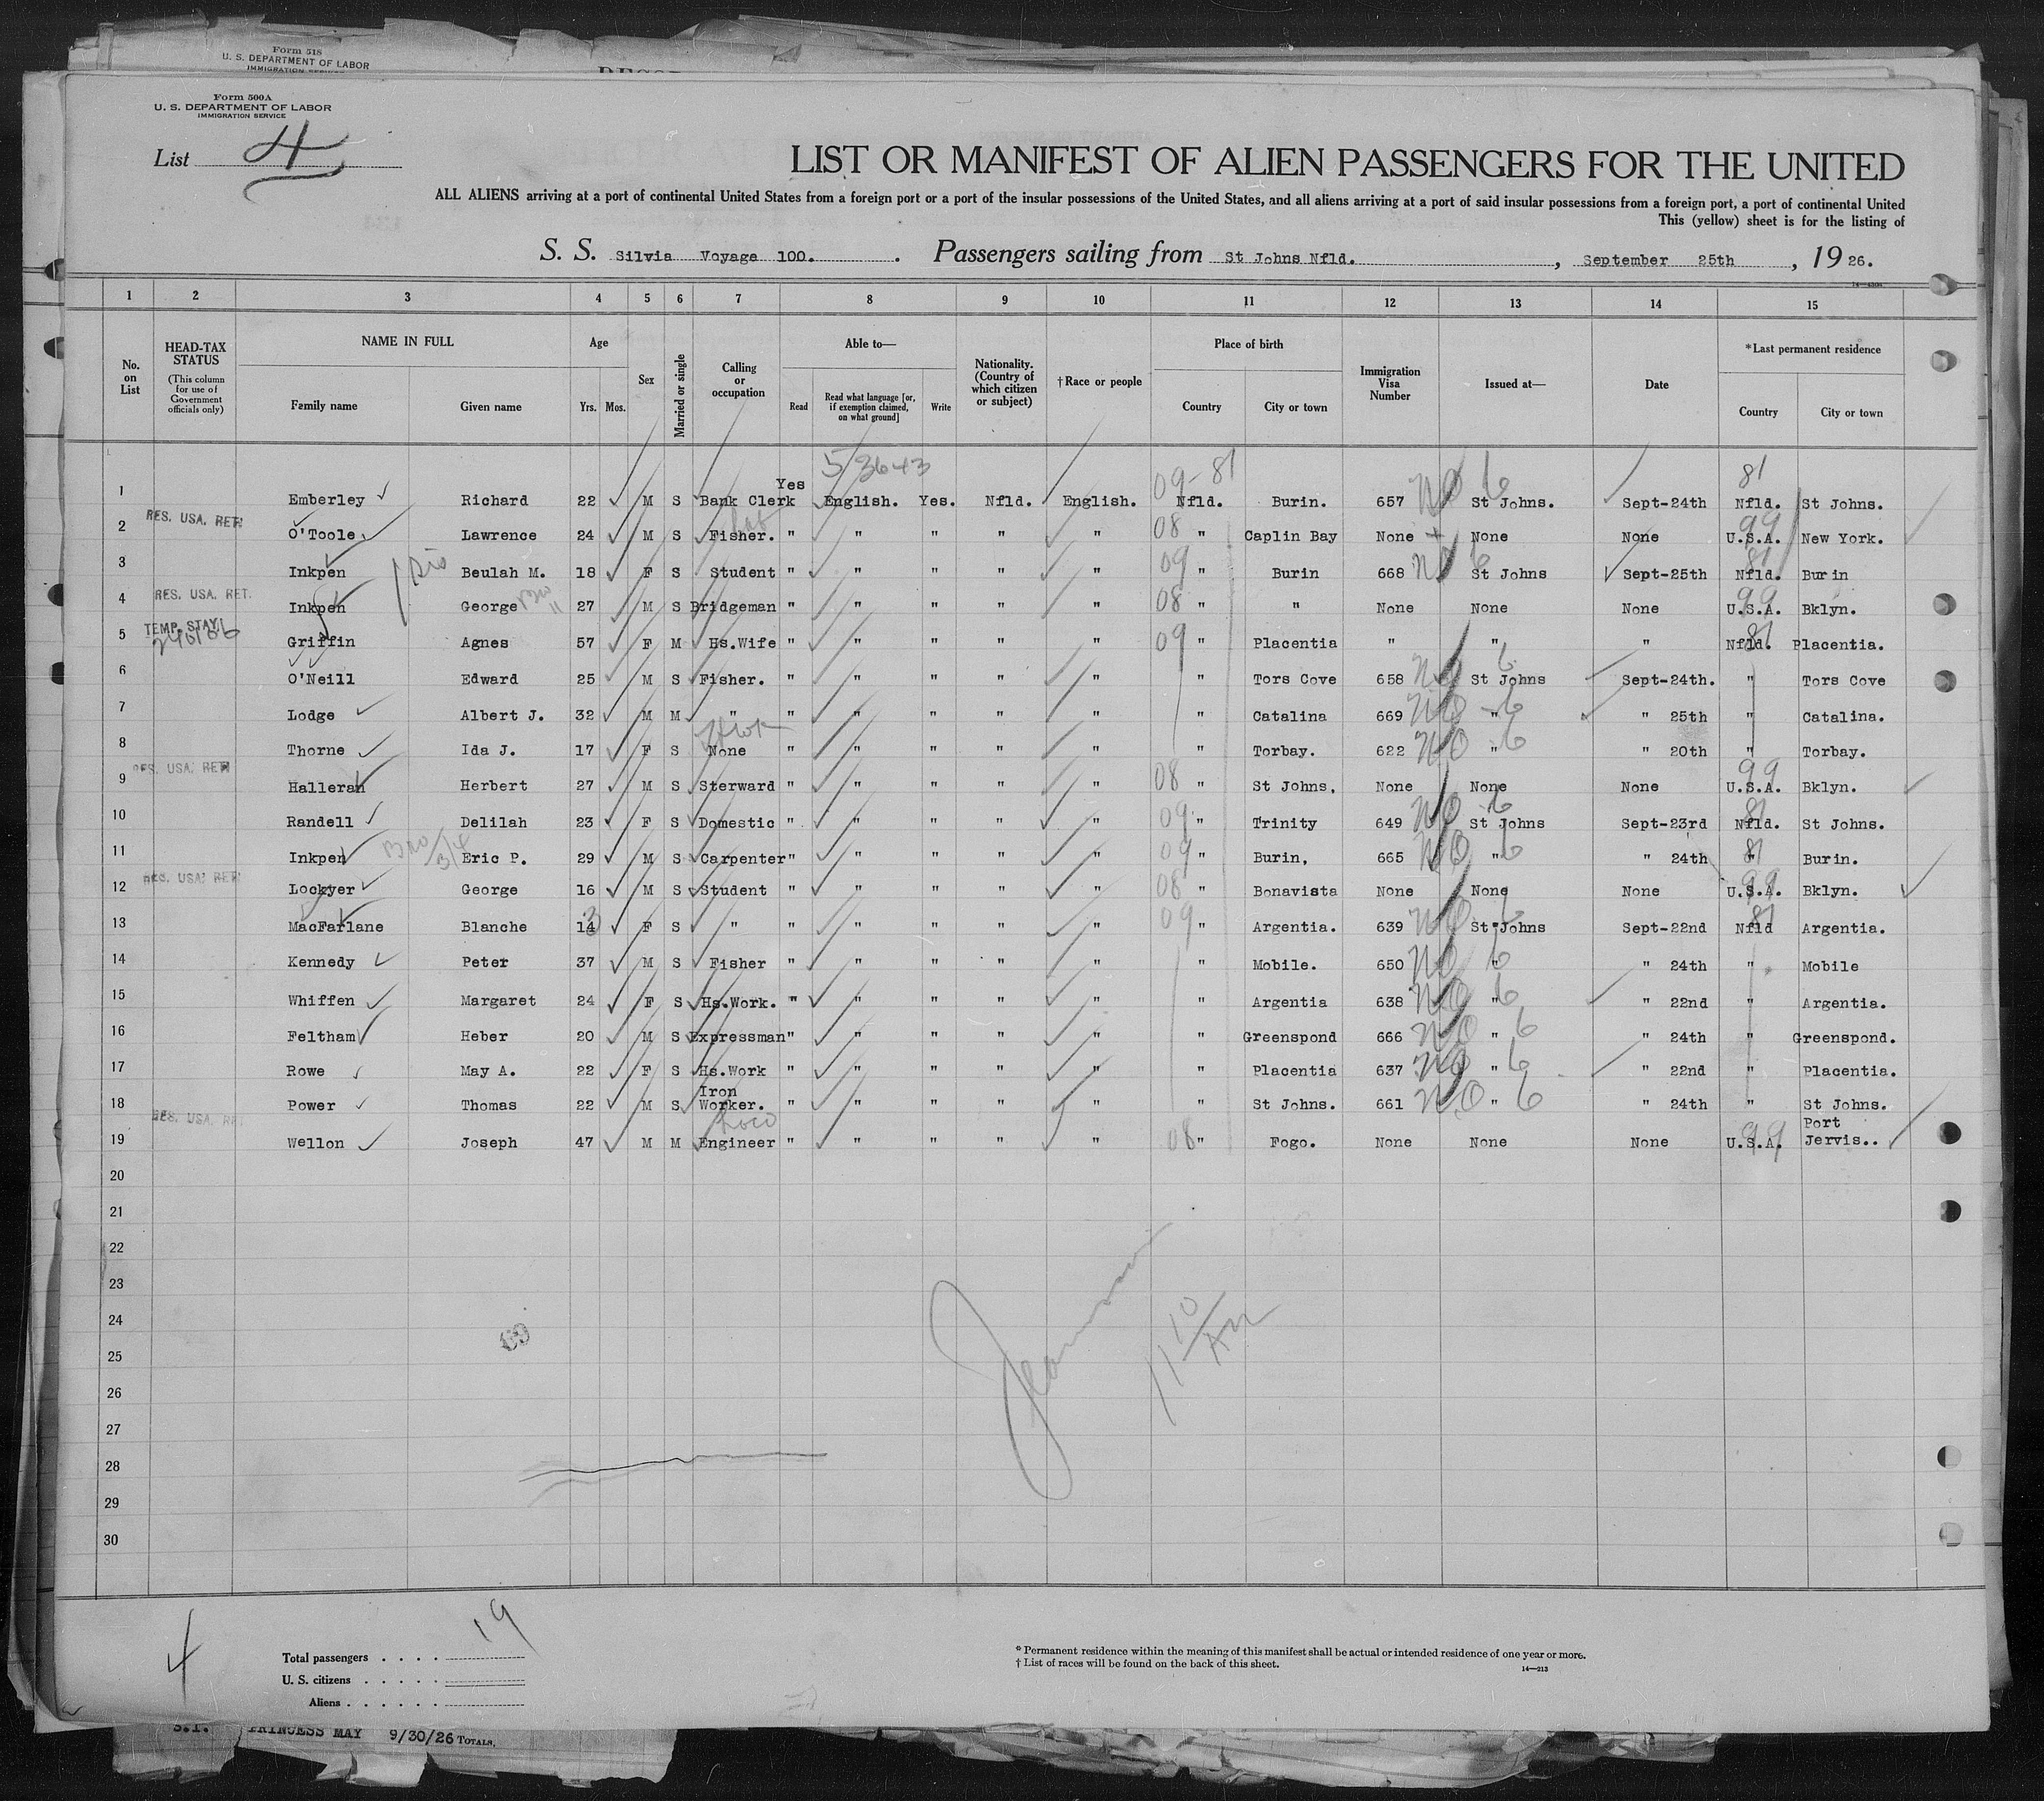 Form 518
U. S. DEPARTMENT OF LABOR
IMMIGRATION SERVICE
Form 500A
U. S. DEPARTMENT OF LABOR
IMMIGRATION SERVICE
List 4
LIST OR MANIFEST OF ALIEN PASSENGERS FOR THE UNITED
ALL ALIENS arriving at a port of continental United States from a foreign port or a port of the insular possessions of the United States, and all aliens arriving at a port of said insular possessions from a foreign port, a port of continental United
This (yellow) sheet is for the listing of
S. S. Silvia Voyage 100. . Passengers sailing from St Johns Nfld. , September 25th , 19 26.
1 2 3 4 5 6 7 8 9 10 11 12 13 14 15
No. on List
HEAD-TAX STATUS
(This column for use of Government officials only)
NAME IN FULL
Family name
Given name
Age
Yrs. Mos.
Sex
Married or single
Calling or occupation
Able to—
Read
Read what language [or, if exemption claimed, on what ground]
Write
Nationality. (Country of which citizen or subject)
† Race or people
Place of birth
Country
City or town
Immigration Visa Number
Issued at—
Date
*Last permanent residence
Country
City or town
5/3643 09-81 81
1 Emberley Richard 22 M S Bank Clerk Yes English. Yes. Nfld. English. Nfld. Burin. 657 NO 6 St Johns. Sept-24th Nfld. St Johns.
RES. USA. RET.
2 O'Toole Lawrence 24 M S Fisher. " " " " " 08 " Caplin Bay None None None 99 U.S.A. New York.
3 Inkpen Sis Beulah M. 18 F S Student " " " " " 09 " Burin 668 NO 6 St Johns Sept-25th 81 Nfld. Burin
RES. USA. RET.
4 Inkpen George Bro 11 27 M S Bridgeman " " " " " 08 " " None None None 99 U.S.A. Bklyn.
TEMP. STAY
5 Griffin Agnes 57 F M Hs.Wife " " " " " 09 " Placentia " " " 81 Nfld. Placentia.
6 O'Neill Edward 25 M S Fisher. " " " " " " Tors Cove 658 NO 6 St Johns Sept-24th. " Tors Cove
7 Lodge Albert J. 32 M M " " " " " " " Catalina 669 NO 6 " " 25th " Catalina.
8 Thorne Ida J. 17 F S None " " " " " " Torbay. 622 NO 6 " " 20th " Torbay.
RES. USA. RET.
9 Halleran Herbert 27 M S Sterward " " " " " 08 " St Johns. None None None 99 U.S.A. Bklyn.
10 Randell Delilah 23 F S Domestic " " " " " 09 " Trinity 649 NO 6 St Johns Sept-23rd 81 Nfld. St Johns.
11 Inkpen Bro 3/4 Eric P. 29 M S Carpenter " " " " " 09 " Burin, 665 NO 6 " " 24th 81 " Burin.
RES. USA. RET.
12 Lockyer George 16 M S Student " " " " " 08 " Bonavista None None None 99 U.S.A. Bklyn.
13 MacFarlane Blanche 14 3 F S " " " " " " 09 " Argentia. 639 NO 6 St Johns Sept-22nd 81 Nfld Argentia.
14 Kennedy Peter 37 M S Fisher " " " " " " Mobile. 650 NO 6 " " 24th " Mobile
15 Whiffen Margaret 24 F S Hs.Work. " " " " " " Argentia 638 NO 6 " " 22nd " Argentia.
16 Feltham Heber 20 M S Expressman " " " " " " Greenspond 666 NO 6 " " 24th " Greenspond.
17 Rowe May A. 22 F S Hs.Work " " " " " " Placentia 637 NO 6 " " 22nd " Placentia.
18 Power Thomas 22 M S Iron Worker. " " " " " " St Johns. 661 NO 6 " " 24th " St Johns.
RES. USA. RET.
19 Wellon Joseph 47 M M Loco Engineer " " " " " 08 " Fogo. None None None 99 U.S.A. Port Jervis..
20
21
22
23
24
25
26
27
28
29
30
11 10 AM
4
19
Total passengers
U. S. citizens
Aliens
* Permanent residence within the meaning of this manifest shall be actual or intended residence of one year or more.
† List of races will be found on the back of this sheet.
14—213
S.T. PRINCESS MAY 9/30/26 TOTALS,